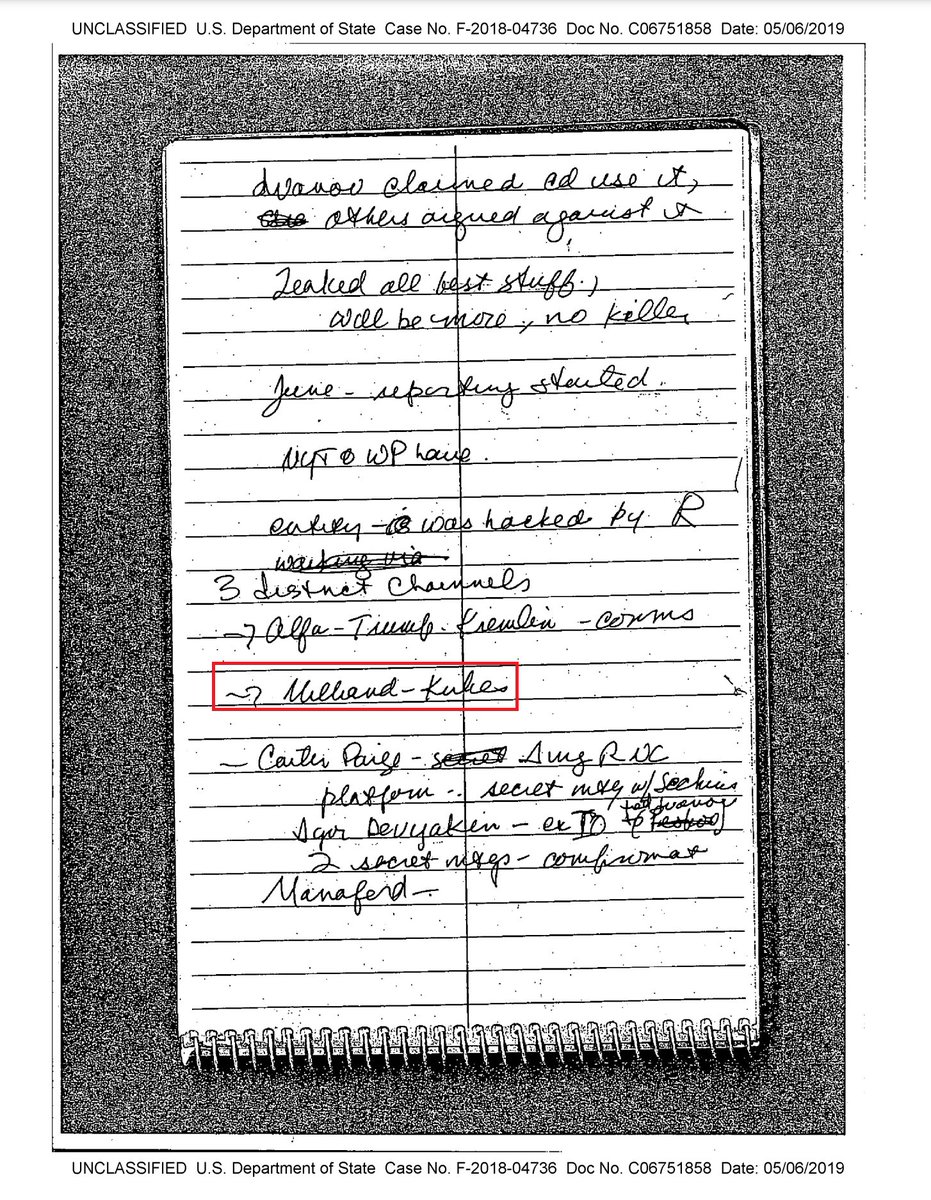 UNCLASSIFIED U.S. Department of State Case No. F-2018-04736 Doc No. C06751858 Date: 05/06/2019
Ivanov claimed cd use it,
others argued against it
Leaked all best stuff,
will be more, no killer
June - reporting started.
NYT & WP have.
was hacked by R
3 distinct channels
→ Alfa-Trump-Kremlin - comms
→ Millian - Kukes
- Carter Paige - secret R
platform - secret mtg w/ Sechin
Igor Devyaken -
2 secret mtgs -
Manaferd -
UNCLASSIFIED U.S. Department of State Case No. F-2018-04736 Doc No. C06751858 Date: 05/06/2019